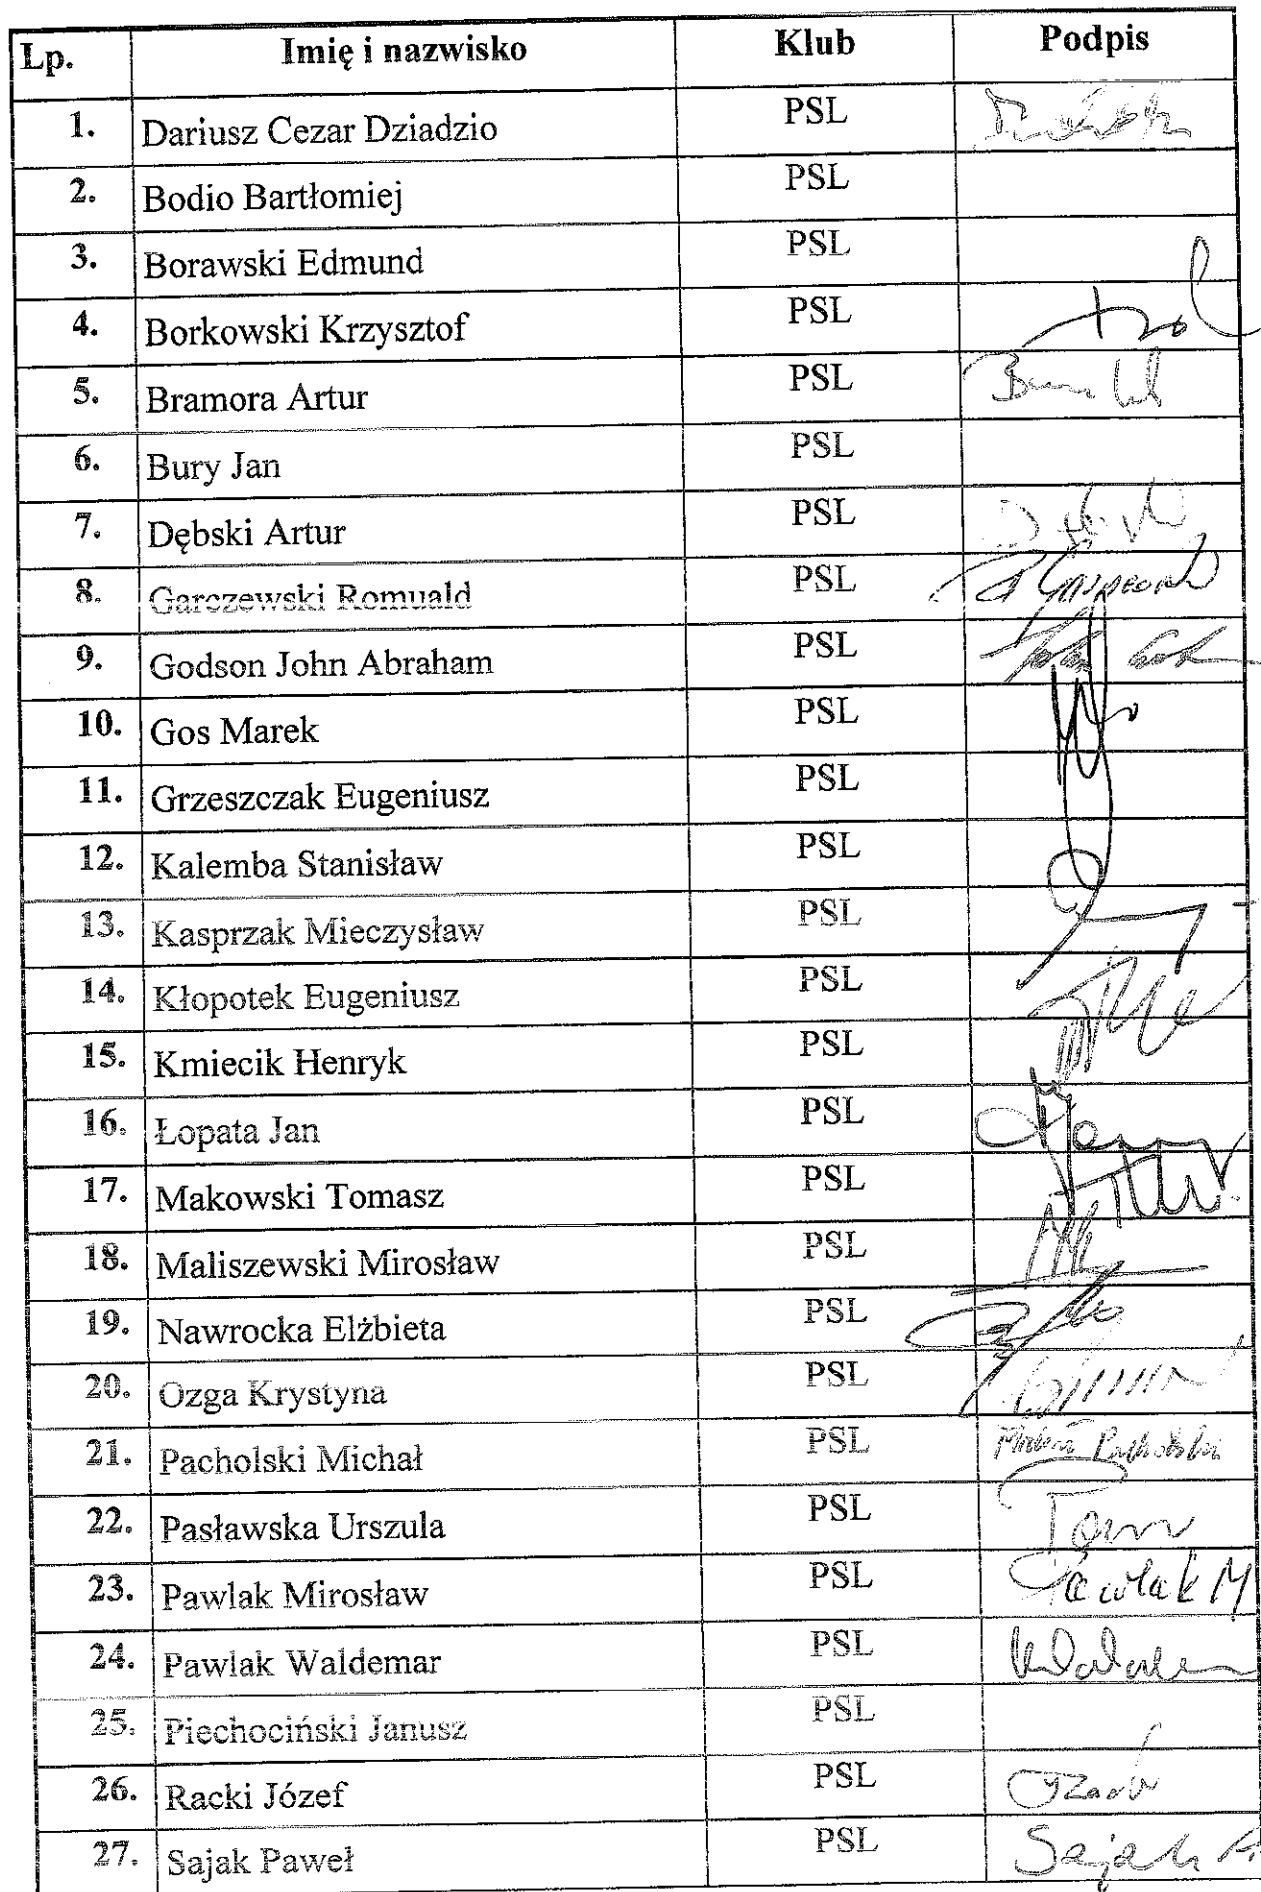 Lp. Imię i nazwisko Klub Podpis
1. Dariusz Cezar Dziadzio PSL
2. Bodio Bartłomiej PSL
3. Borawski Edmund PSL
4. Borkowski Krzysztof PSL
5. Bramora Artur PSL
6. Bury Jan PSL
7. Dębski Artur PSL
8. Garczewski Romuald PSL
9. Godson John Abraham PSL
10. Gos Marek PSL
11. Grzeszczak Eugeniusz PSL
12. Kalemba Stanisław PSL
13. Kasprzak Mieczysław PSL
14. Kłopotek Eugeniusz PSL
15. Kmiecik Henryk PSL
16. Łopata Jan PSL
17. Makowski Tomasz PSL
18. Maliszewski Mirosław PSL
19. Nawrocka Elżbieta PSL
20. Ozga Krystyna PSL
21. Pacholski Michał PSL
22. Pasławska Urszula PSL
23. Pawlak Mirosław PSL Pawlak M
24. Pawlak Waldemar PSL
25. Piechociński Janusz PSL
26. Racki Józef PSL
27. Sajak Paweł PSL Sajak P.